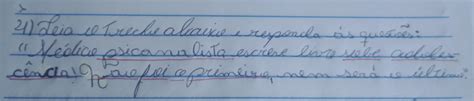 21) Leia o trecho abaixo e responda às questões:
"Médico psicanalista escreve livro sobre adoles-
cência! Não foi o primeiro, nem será o último."